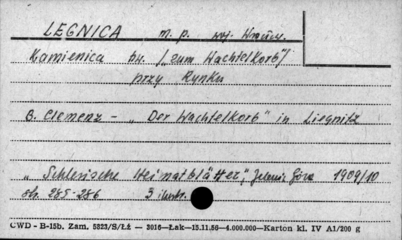 LEGNICA m. p. woj. Wrocław.
Kamienica zw. /"zum Wachtelkorb"/
przy Rynku
B. Clemenz - „Der Wachtelkorb" in Liegnitz
„Schlesische Heimatblätter", Jelenia Góra 1909/10
str. 285-286 3 ilustr.
CWD - B-15b. Zam. 5823/S/Łż — 2016—Łak—15.11.56—4.000.000—Karton kl. IV A1/200 g